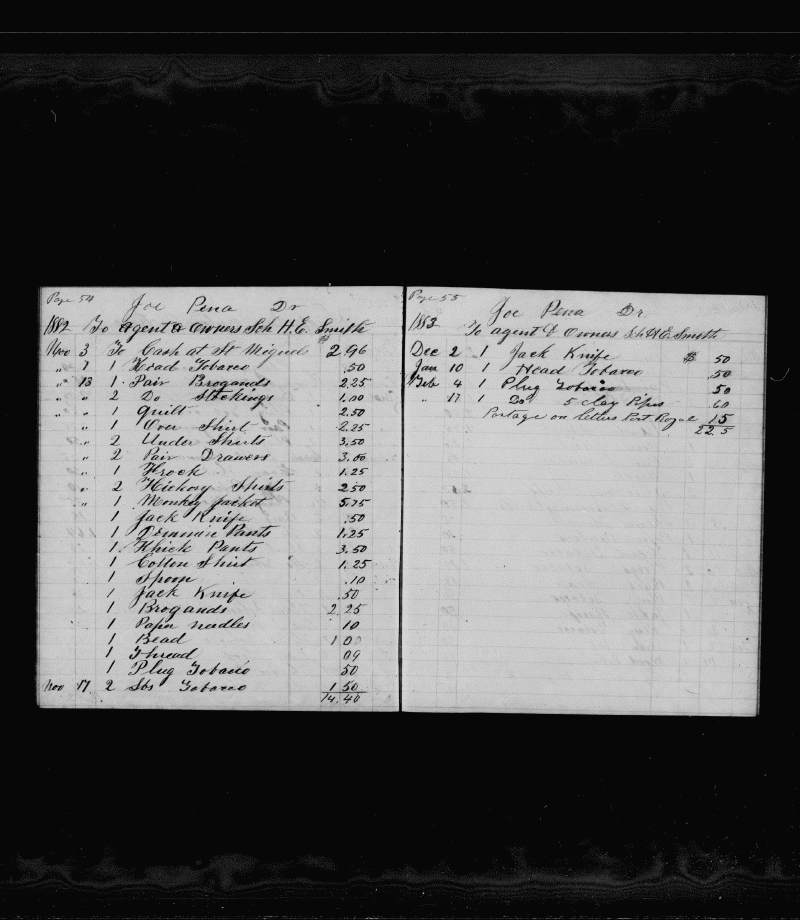 Page 54
Joe Pena Dr
1882 To agent & owners Sch H.E. Smith
$
Nov 3 To Cash at St Miguel 2.96
" 7 1 Head Tobacco .50
" 13 1 Pair Brogands 2.25
" " 2 Do Stockings 1.00
" 1 Quilt 2.50
" 1 Over Shirt 2.25
" 2 Under Shirts 3.50
" 2 Pair Drawers 3.00
" 1 Frock 1.25
" 2 Hickory Shirts 2 50
" 1 Monkey Jacket 5.75
1 Jack Knife .50
1 Pants 1.25
1 Thick Pants 3.50
1 Cotton Shirt 1.25
1 Spoon .10
1 Jack Knife .50
1 Brogands 2.25
1 Paper needles 10
1 Bead 1 00
1 Thread 09
1 Plug Tobacco 50
Nov 17 2 Lbs Tobacco 1 50
14.40
Page 55
Joe Pena Dr.
1883 To agent & Owners Sch H E Smith
Dec 2 1 Jack Knife $ 50
Jan 10 1 Head Tobacco .50
Feb 4 1 Plug Tobacco 50
" 17 1 Do 5 clay Pipes 60
Postage on letters Port Royal 15
22.5